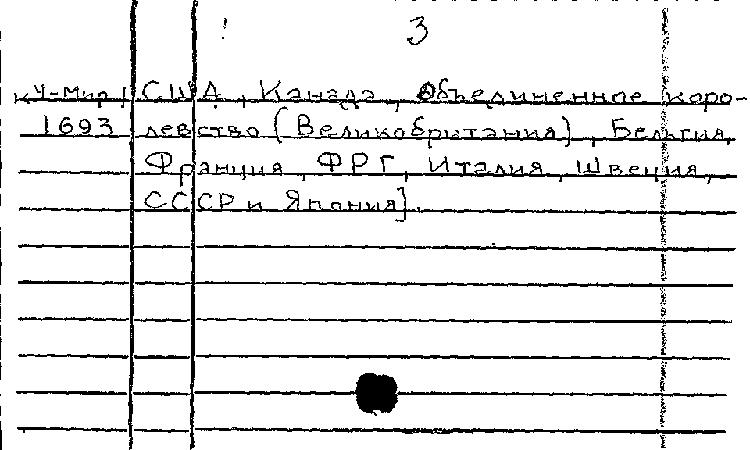 3
Ч-мир США, Канада, Объединенное коро-
1693 левство (Великобритания), Бельгия,
Франция, ФРГ, Италия, Швеция,
СССР и Япония].